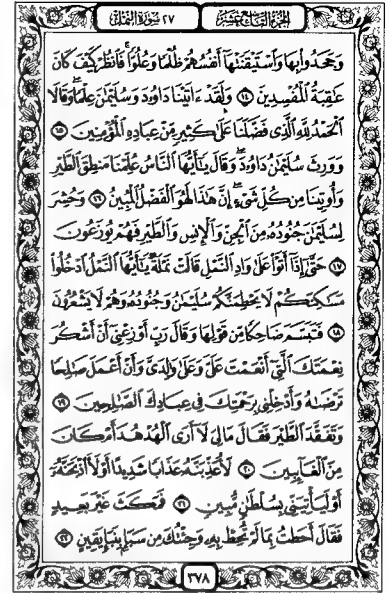 الجزء التاسع عشر
٢٧ سورة النمل
وَجَحَدُوا۟ بِهَا وَٱسْتَيْقَنَتْهَآ أَنفُسُهُمْ ظُلْمًا وَعُلُوًّا ۚ فَٱنظُرْ كَيْفَ كَانَ
عَٰقِبَةُ ٱلْمُفْسِدِينَ ١٤ وَلَقَدْ ءَاتَيْنَا دَاوُۥدَ وَسُلَيْمَٰنَ عِلْمًا ۖ وَقَالَا
ٱلْحَمْدُ لِلَّهِ ٱلَّذِى فَضَّلَنَا عَلَىٰ كَثِيرٍ مِّنْ عِبَادِهِ ٱلْمُؤْمِنِينَ ١٥
وَوَرِثَ سُلَيْمَٰنُ دَاوُۥدَ ۖ وَقَالَ يَٰٓأَيُّهَا ٱلنَّاسُ عُلِّمْنَا مَنطِقَ ٱلطَّيْرِ
وَأُوتِينَا مِن كُلِّ شَىْءٍ ۖ إِنَّ هَٰذَا لَهُوَ ٱلْفَضْلُ ٱلْمُبِينُ ١٦ وَحُشِرَ
لِسُلَيْمَٰنَ جُنُودُهُۥ مِنَ ٱلْجِنِّ وَٱلْإِنسِ وَٱلطَّيْرِ فَهُمْ يُوزَعُونَ
١٧ حَتَّىٰٓ إِذَآ أَتَوْا۟ عَلَىٰ وَادِ ٱلنَّمْلِ قَالَتْ نَمْلَةٌ يَٰٓأَيُّهَا ٱلنَّمْلُ ٱدْخُلُوا۟
مَسَٰكِنَكُمْ لَا يَحْطِمَنَّكُمْ سُلَيْمَٰنُ وَجُنُودُهُۥ وَهُمْ لَا يَشْعُرُونَ
١٨ فَتَبَسَّمَ ضَاحِكًا مِّن قَوْلِهَا وَقَالَ رَبِّ أَوْزِعْنِىٓ أَنْ أَشْكُرَ
نِعْمَتَكَ ٱلَّتِىٓ أَنْعَمْتَ عَلَىَّ وَعَلَىٰ وَٰلِدَىَّ وَأَنْ أَعْمَلَ صَٰلِحًا
تَرْضَىٰهُ وَأَدْخِلْنِى بِرَحْمَتِكَ فِى عِبَادِكَ ٱلصَّٰلِحِينَ ١٩
وَتَفَقَّدَ ٱلطَّيْرَ فَقَالَ مَالِىَ لَآ أَرَى ٱلْهُدْهُدَ أَمْ كَانَ
مِنَ ٱلْغَآئِبِينَ ٢٠ لَأُعَذِّبَنَّهُۥ عَذَابًا شَدِيدًا أَوْ لَأَا۟ذْبَحَنَّهُۥٓ
أَوْ لَيَأْتِيَنِّى بِسُلْطَٰنٍ مُّبِينٍ ٢١ فَمَكَثَ غَيْرَ بَعِيدٍ
فَقَالَ أَحَطتُ بِمَا لَمْ تُحِطْ بِهِۦ وَجِئْتُكَ مِن سَبَإٍۭ بِنَبَإٍ يَقِينٍ ٢٢
٣٧٨